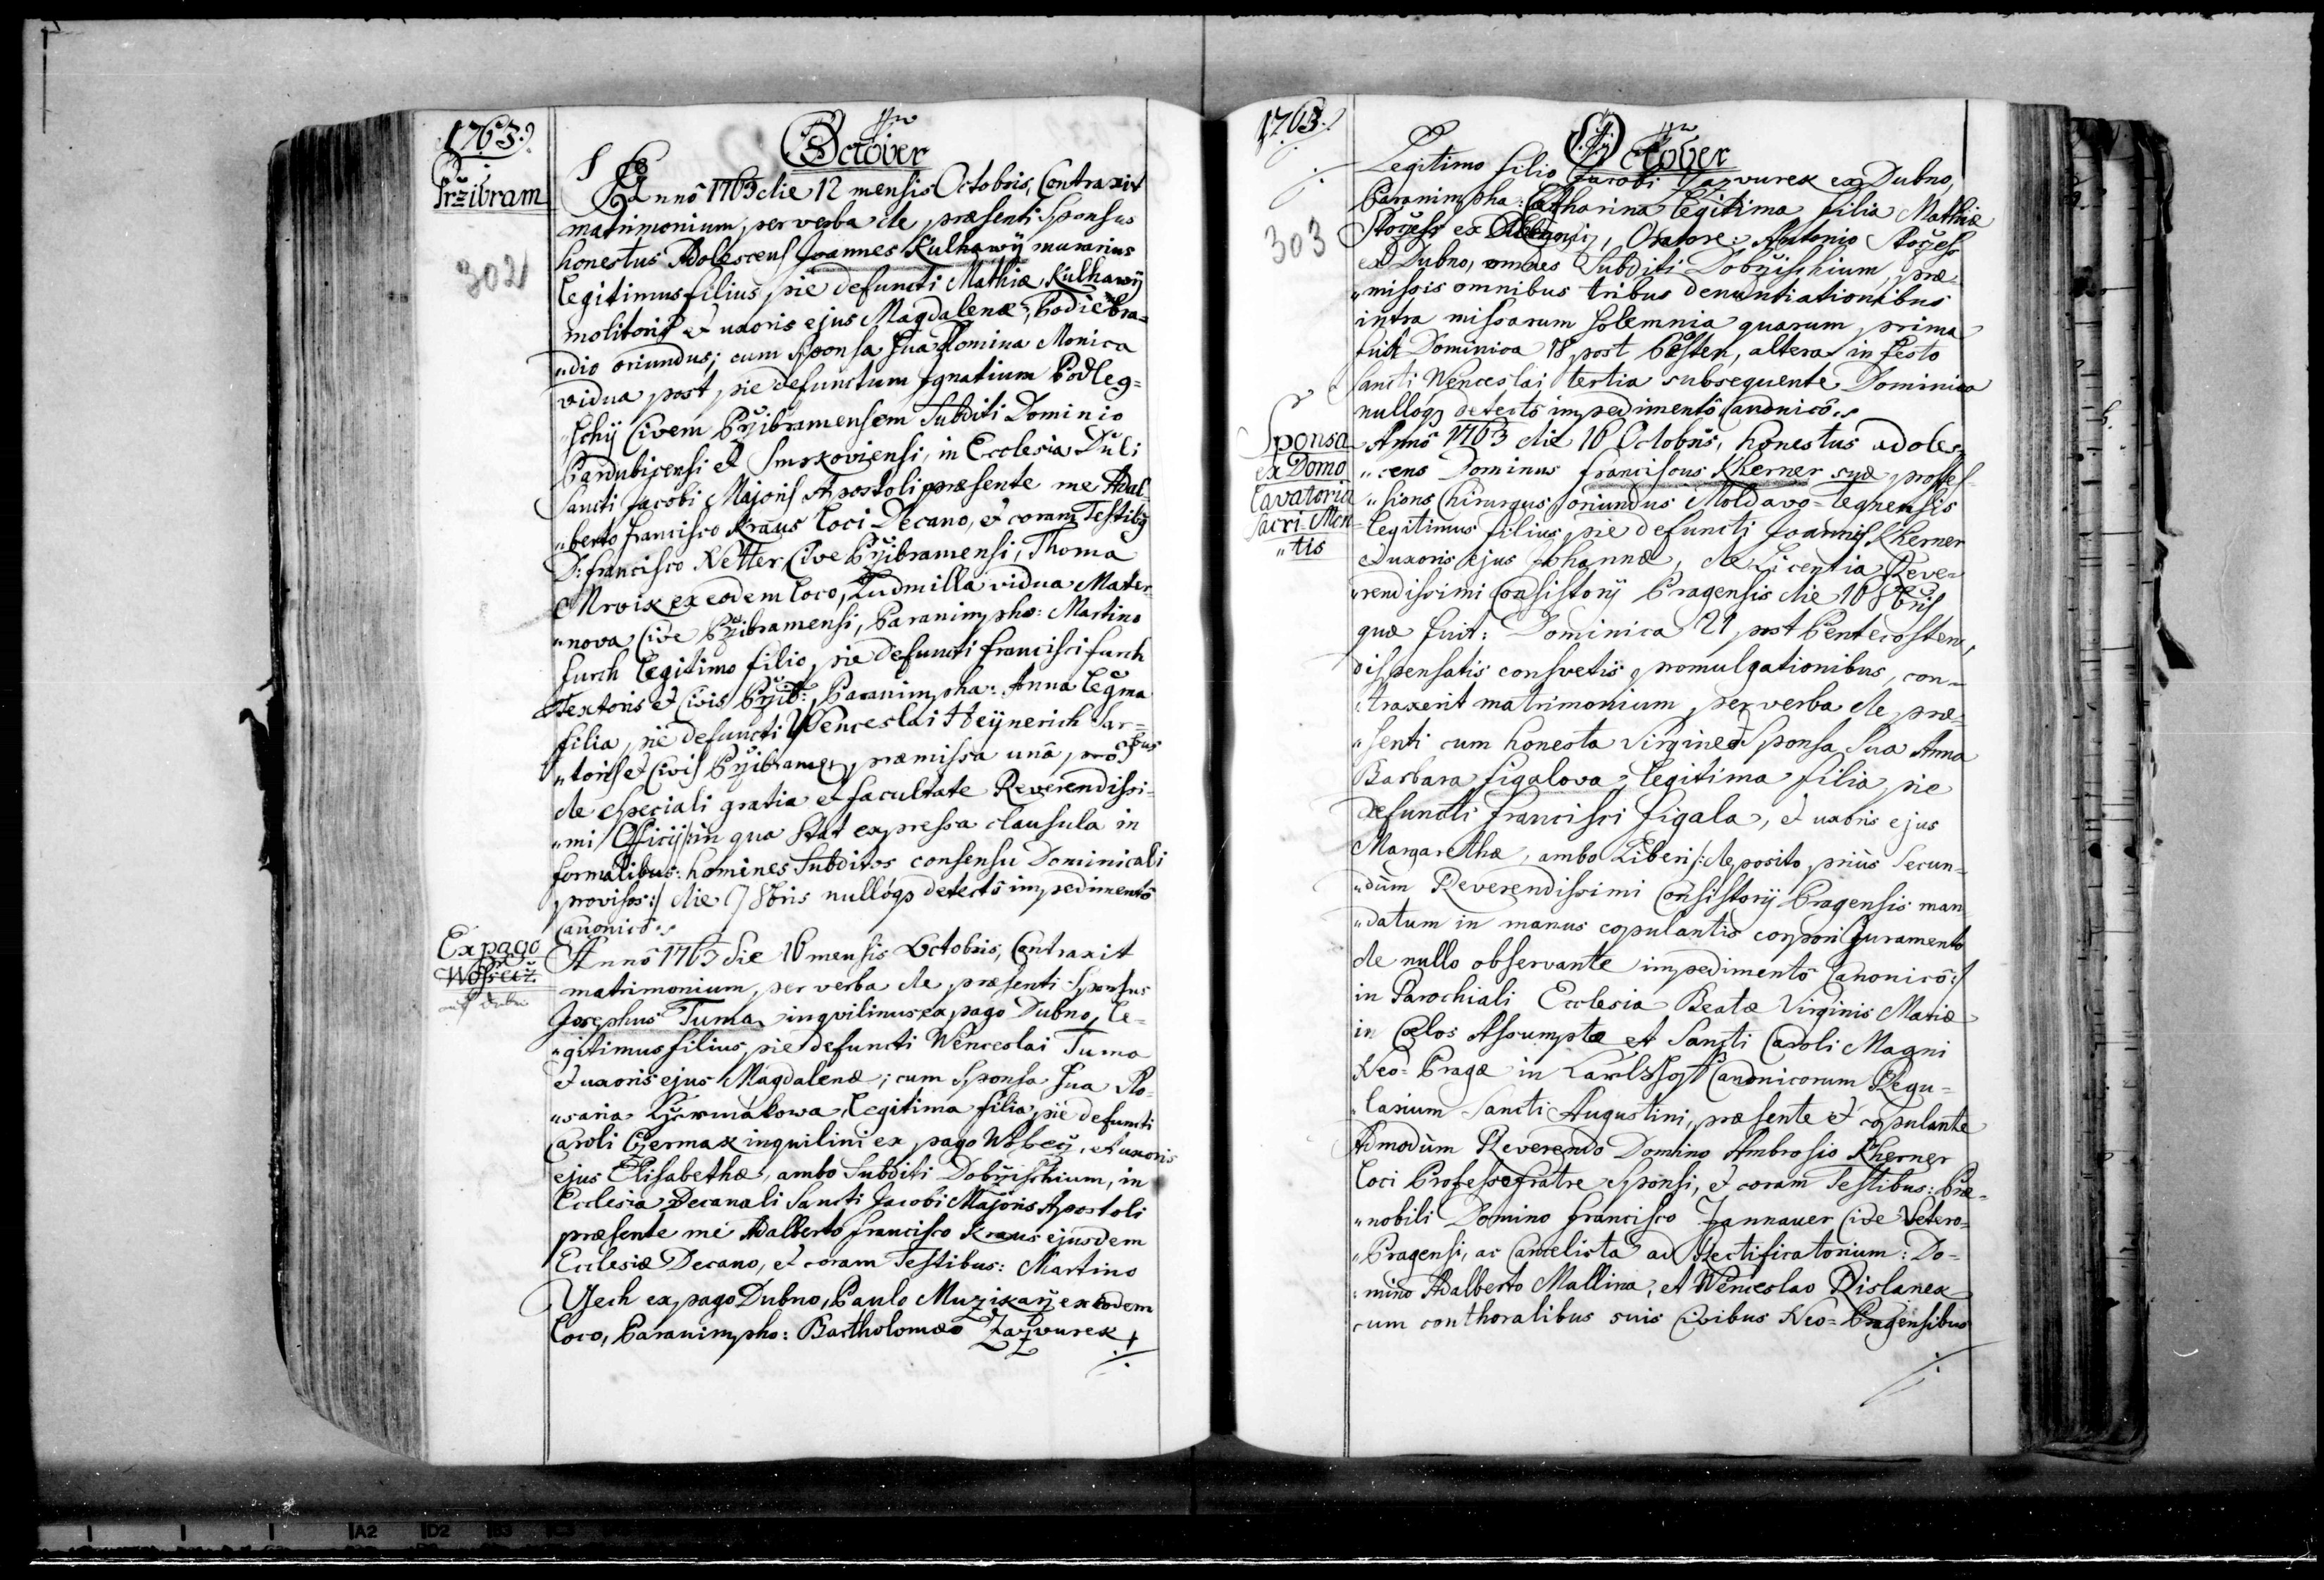 1763.
October
Przibram
302
Annô 1763 die 12 mensis Octobris, Contraxit
matrimonium, per verba de præsenti Sponsus
honestus Adolescens Joannes Kulhawÿ murarius
legitimus filius, pie defuncti Mathiæ Kulhawÿ
molitoris et uxoris ejus Magdalenæ, Podiebra=
"dio oriundus; cum Sponsa Sua Domina Monica
vidua post pie defunctum Ignatium Podleg=
"schÿ Civem Przibramensem Subditi Dominio
Pardubicensi et Smrkoviensi, in Ecclesia
Sancti Jacobi Majoris Apostoli præsente me Adal=
"berto Francisco Kraus Loci Decano, et coram Testibq
D: Francisco Netter Cive Przibramensi, Thoma
Mrvix ex eodem Loco, Ludmilla vidua
"nova Cive Przibramensi, Paranimpho: Martino
Furch legitimo filio, pie defuncti Francisci Furch
Textoris et Civis Przib: Paranimpha: Anna legma
filia, pie defuncti Wenceslai Heÿnerich Sar=
"toris et Civis Przibramen, præmissa unâ, pro
de speciali gratia et facultate Reverendissi=
"mi Officij /:in qua Stat expressa clausula in
formalibus: homines Subditos consensu Dominicali
provisos:/ die 7 8bris nullóq detectô impedimentô
Canonicô.
Ex pago
Wossecz
Annô 1763 die 16 mensis Octobris, Contraxit
matrimonium, per verba de præsenti Sponsus
Josephus Tuma inqvilinus ex pago Dubno, le=
"gitimus filius, pie defuncti Wenceslai Tuma
et uxoris ejus Magdalenæ; cum Sponsa Sua Ro=
"saria Czermakowa, legitima filia, pie defuncti
Caroli Czermak inquilini ex pago, et uxoris
ejus Elisabethæ, ambo Subditi Dobrzischium, in
Ecclesia Decanali Sancti Jacobi Majoris Apostoli
præsente me Adalberto Francisco Kraus ejusdem
Ecclesiæ Decano, et coram Testibus: Martino
Czech ex pago Dubno, Paulo Muzikarz ex eodem
Loco, Paranimpho: Bartholomæo Zazvurek
1763.
October
303
Legitimo filio Jacobi Zazvurek ex Dubno,
Paranimpha: Catharina legitima filia Mathiæ
ex, Oratore: Antonio
ex Dubno, omnes Subditi Dobrzischium, præ=
"missis omnibus tribus denuntiationibus
intra missarum Solemnia quarum prima
fuit Dominica 18 post Pesten, altera in Festo
Sancti Wenceslai tertia subsequente Dominica
nullóq detectô impedimentô Canonicô.
Sponsa
ex Domo
Lavatoria
Sacri Mon=
"tis
Annô 1763 die 16 Octobris, honestus adoles=
"cens Dominus Franciscus Kherner suæ profes=
"sions Chirurgus oriundus Moldavo=Teÿnensis
legitimus filius, pie defuncti Joannis Kherner
et uxoris ejus Johannæ, de Licentia Reve=
"rendissimi Consistorij Pragensis die 16 8bris
quæ fuit: Dominica 21 post Pentecosten,
dispensatis consvetis promulgationibus, con=
"traxerit matrimonium, per verba de præ=
"senti cum honesta Virgine et Sponsa Sua Anna
Barbara Figalova, legitima filia pie
defuncti Francisci Figala, et uxoris ejus
Margarethæ, ambo Liberi /:deposito prius Secun=
"dum Reverendissimi Consistorij Pragensis man
"datum in manus copulantis corpori Juramento
de nullo observante impedimentô Canonicô:/
in Parochiali Ecclesia Beatæ Virginis Mariæ
in Cælos Assumptæ et Sancti Caroli Magni
Neo=Pragæ in Carlshoff Canonicorum Regu=
"larium Sancti Augustini, præsente et copulante
Admodùm Reverendo Domino Ambrosio Kherner
Loci Professo fratre Sponsi, et coram Testibus: Præ=
"nobili Domino Francisco Zannauer Cive Vetero=
"Pragensi, ac Cancelista ad Rectificatorium: Do=
"mino Adalberto Mallina, et Wenceslao Rislanek
cum conthoralibus suis Civibus Neo=Pragensibus